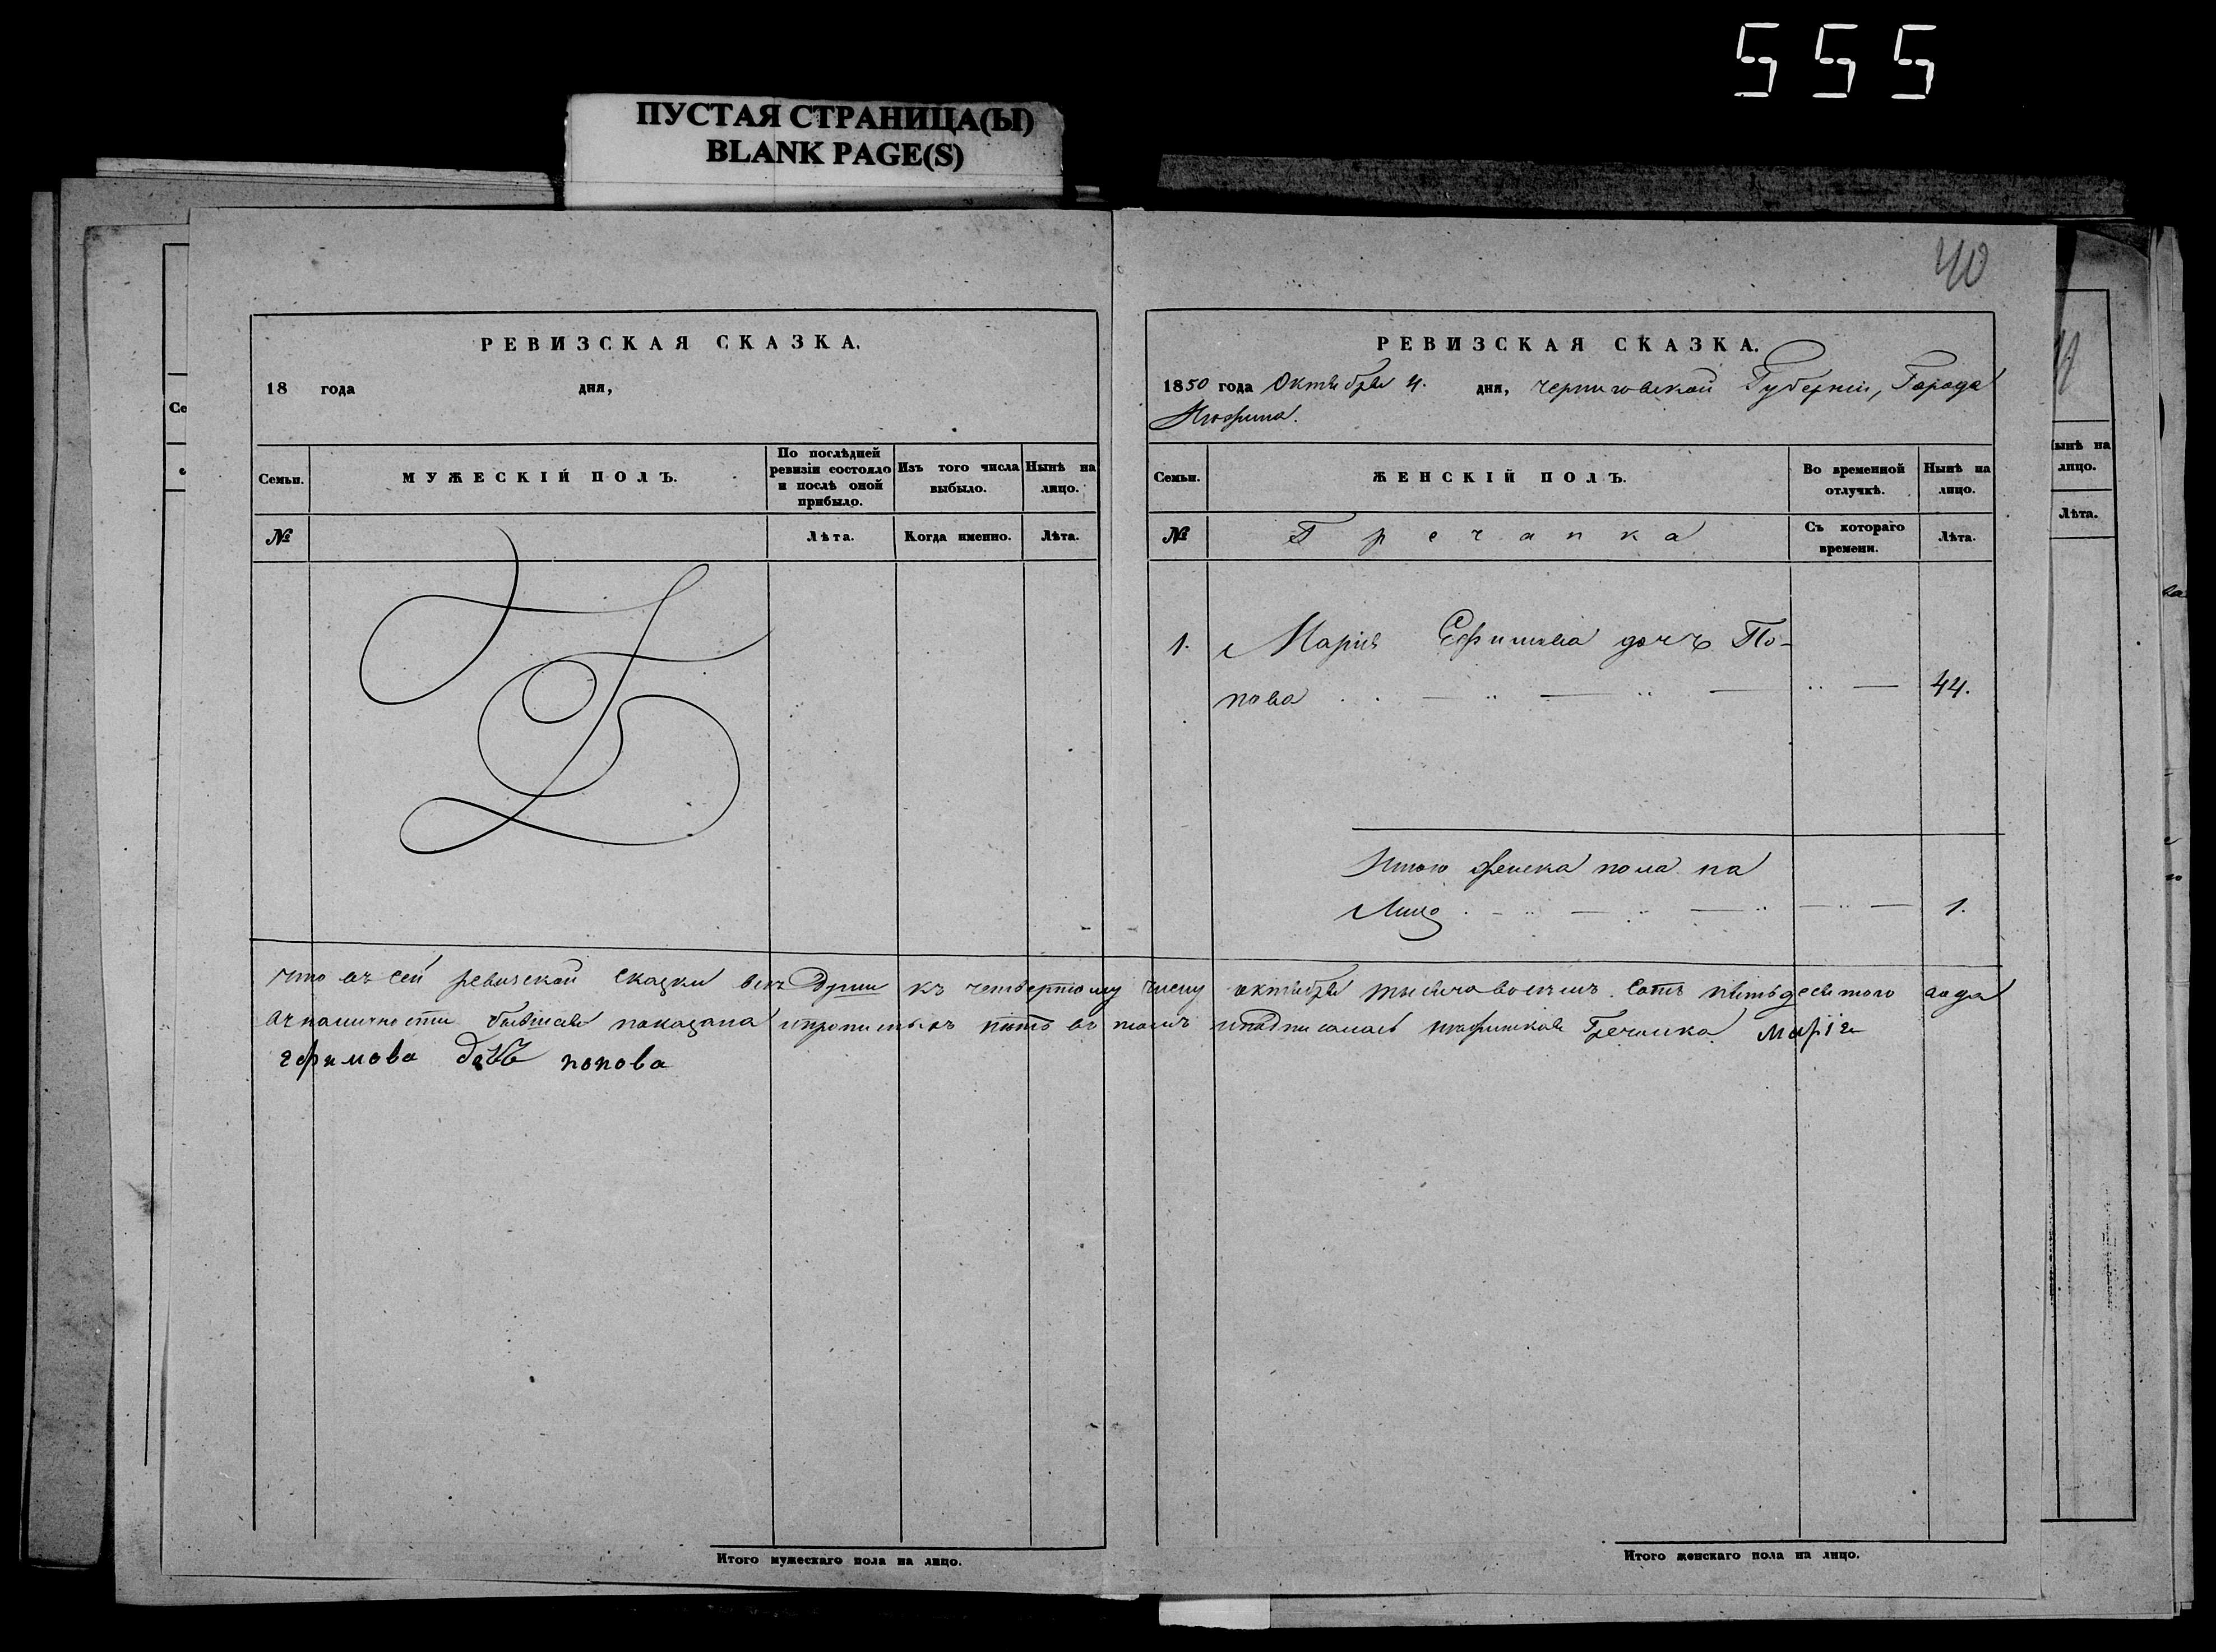 555
ПУСТАЯ СТРАНИЦА(Ы)
BLANK PAGE(S)
РЕВИЗСКАЯ СКАЗКА.
18 года дня,
Семьи.
МУЖЕСКІЙ ПОЛЪ.
По послѣдней ревизіи состояло и послѣ оной прибыло.
Изъ того числа выбыло.
Нынѣ на лицо.
№
Лѣта.
Когда именно.
Лѣта.
40
РЕВИЗСКАЯ СКАЗКА.
1850 года Октября 4. дня, Черниговской Губерніи, Города
Нѣжина.
Семьи.
ЖЕНСКІЙ ПОЛЪ.
Во временной отлучкѣ.
Нынѣ на лицо.
№
Гречанка
Съ котораго времени.
Лѣта.
1. Марія Ефимова дочь По-
пова 44.
Итого женска пола на
Лицо 1.
что въ сей ревизской сказки всѣ Души къ четвертому числу октября тысяча восемь сотъ пятьдесятого года
въ наличности показана въ томъ подписалась Гречанка Марія
Ефимова дочь попова
Итого мужескаго пола на лицо.
Итого женскаго пола на лицо.
Нынѣ на лицо.
Лѣта.